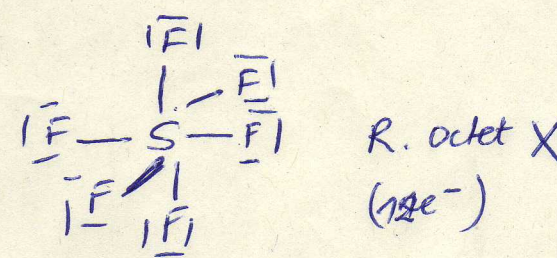 F
F
F S F
F
F
R. octet X
(12e⁻)